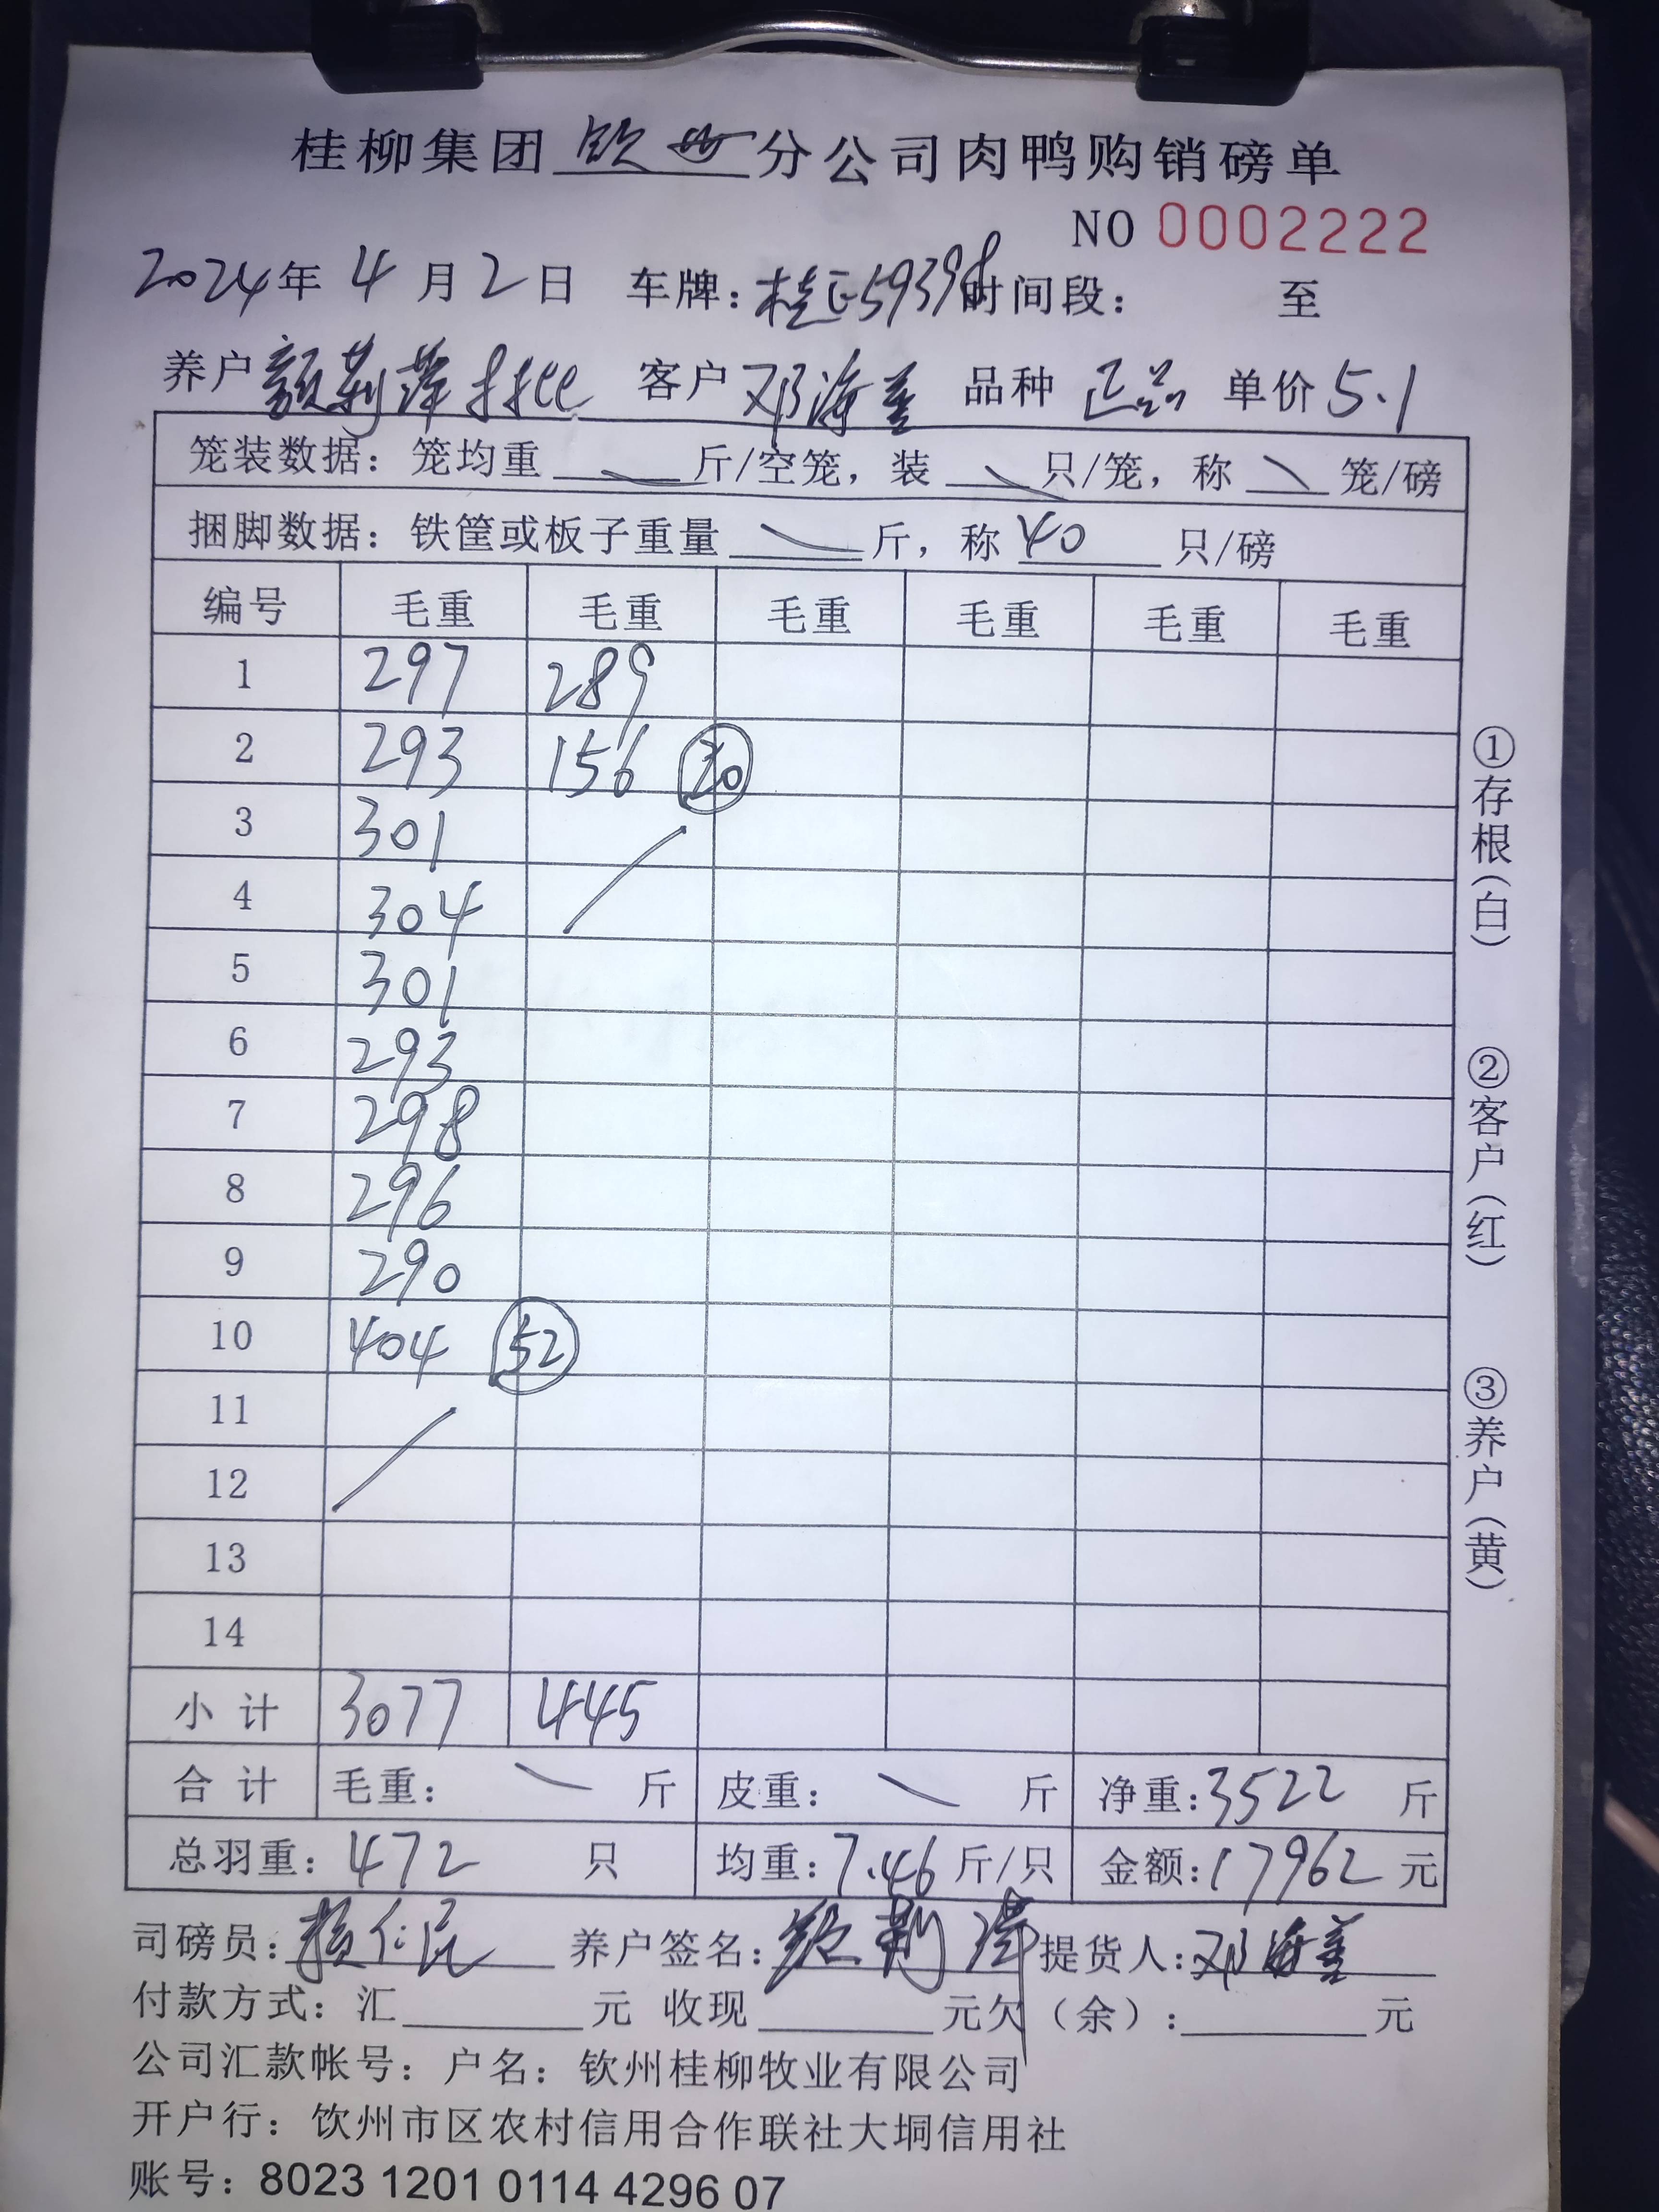 桂柳集团 钦州 分公司肉鸭购销磅单
NO 0002222
2024年 4 月 2 日 车牌：桂E59398 时间段： 至
养户 莉萍 批 客户 邓海 品种 正品 单价 5.1
笼装数据：笼均重 \ 斤/空笼，装 \ 只/笼，称 \ 笼/磅
捆脚数据：铁筐或板子重量 \ 斤，称 40 只/磅
编号 毛重 毛重 毛重 毛重 毛重 毛重
1 297 289
2 293 156 20
3 301
4 304
5 301
6 293
7 298
8 296
9 290
10 404 52
11
12
13
14
小 计 3077 445
合 计 毛重： \ 斤 皮重： \ 斤 净重：3522 斤
总羽重：472 只 均重：7.46 斤/只 金额：17962 元
司磅员： 仁民 养户签名： 莉 提货人：邓海
付款方式：汇 元 收现 元欠（余）： 元
公司汇款帐号：户名：钦州桂柳牧业有限公司
开户行：饮州市区农村信用合作联社大垌信用社
账号：8023 1201 0114 4296 07
①存根（白）
②客户（红）
③养户（黄）